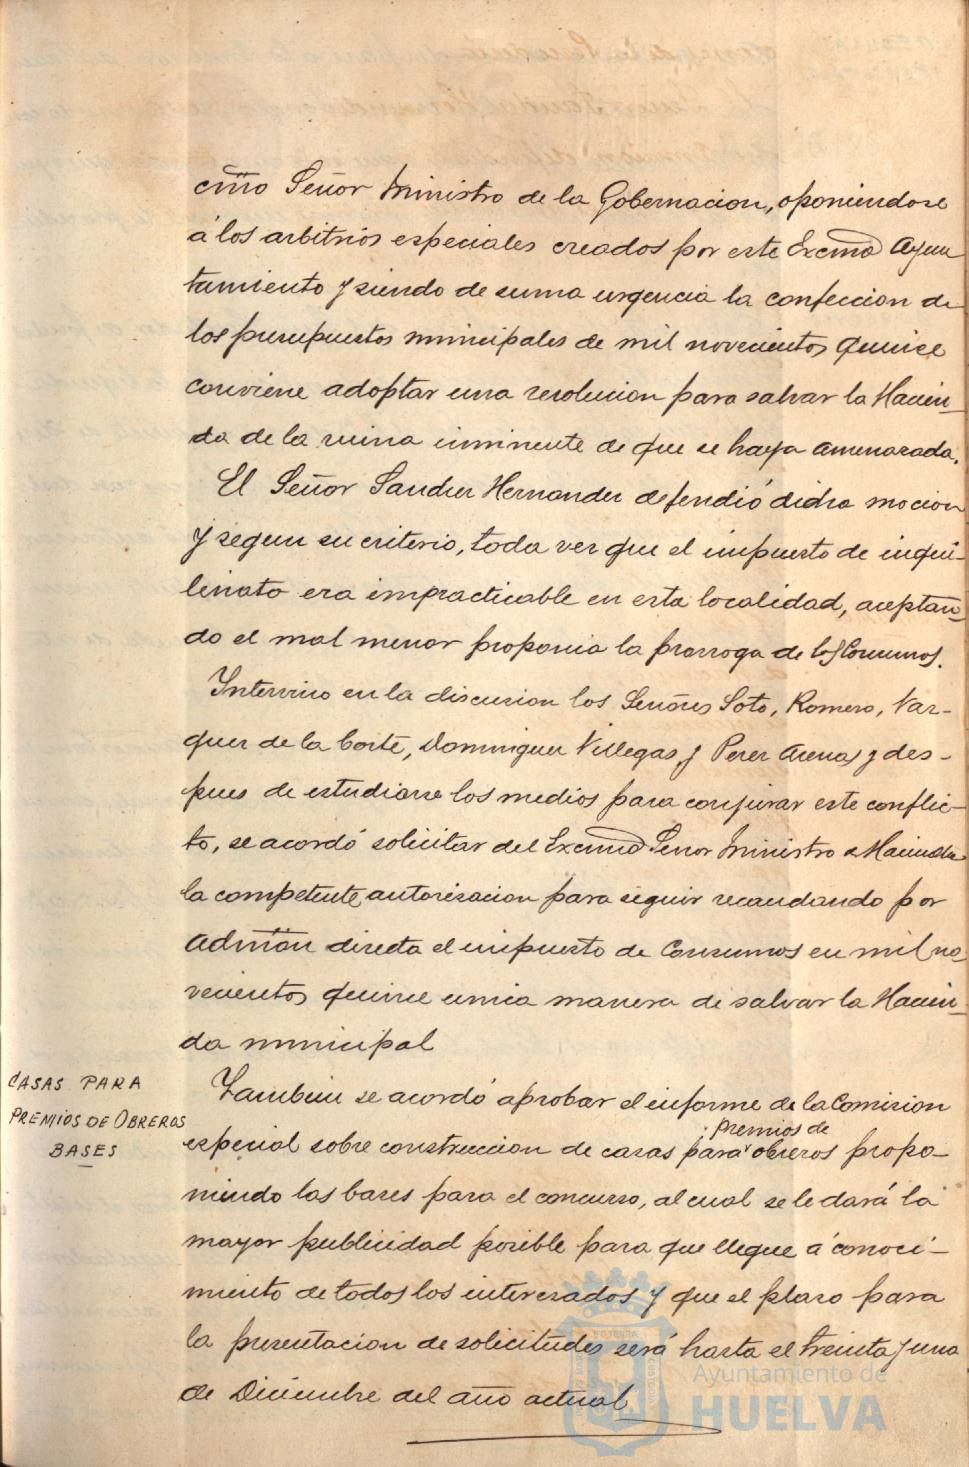 cmo Señor Ministro de la Gobernacion, oponiendose
á los arbitrios especiales creados por este Excmo Ayun
tamiento y siendo de suma urgencia la confeccion de
los presupuestos municipales de mil novecientos quince
conviene adoptar una resolucion para salvar la Hacien-
da de la ruina inminente de que se haya amenazada.
El Señor Sanchez Hernandez defendió dicha mocion
y segun su criterio, toda vez que el impuesto de inqui-
linato era impracticable en esta localidad, aceptan-
do el mal menor proponia la prorroga de los Consumos.
Intervino en la discusion los Señores Soto, Romero, Vaz-
quez de la Corte, Dominguez Villegas y Perez Arenas y des-
pues de estudiarse los medios para conjurar este conflic-
to, se acordó solicitar del Excmo Señor Ministro de Hacienda
la competente autorizacion para seguir recaudando por
Admon directa el impuesto de Consumos en mil no-
vecientos quince unica manera de salvar la Hacien-
da municipal
CASAS PARA
PREMIOS DE OBREROS
BASES
Tambien se acordó aprobar el informe de la Comision
premios de
especial sobre construccion de casas para obreros propo-
niendo las bases para el concurso, al cual se le dará la
mayor publicidad posible para que llegue á conoci-
miento de todos los interesados y que el plazo para
la presentacion de solicitudes será hasta el treinta y uno
de Diciembre del año actual
Ayuntamiento de
HUELVA